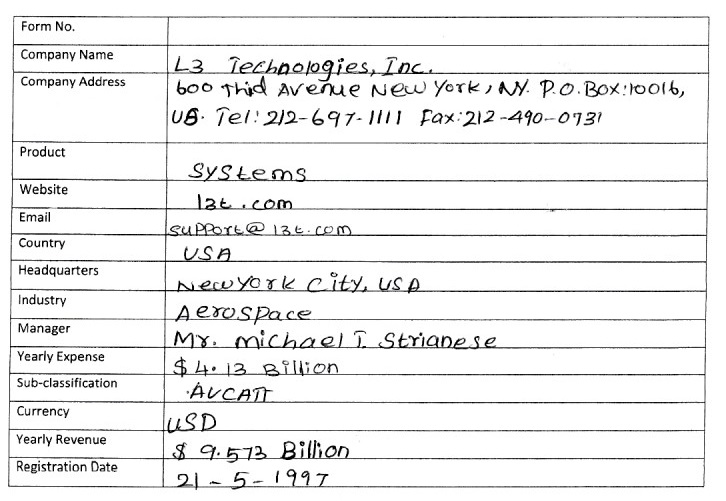 Form No.
Company Name L3 Technologies, Inc.
Company Address 600 Thid Avenue New York, NY. P.O.Box:10016,
US. Tel: 212-697-1111 Fax:212-490-0731
Product Systems
Website l3t.com
Email support@l3t.com
Country USA
Headquarters New York City, USA
Industry Aerospace
Manager Mr. Michael T. Strianese
Yearly Expense $4.13 Billion
Sub-classification AVCATT
Currency USD
Yearly Revenue $ 9.573 Billion
Registration Date 21-5-1997